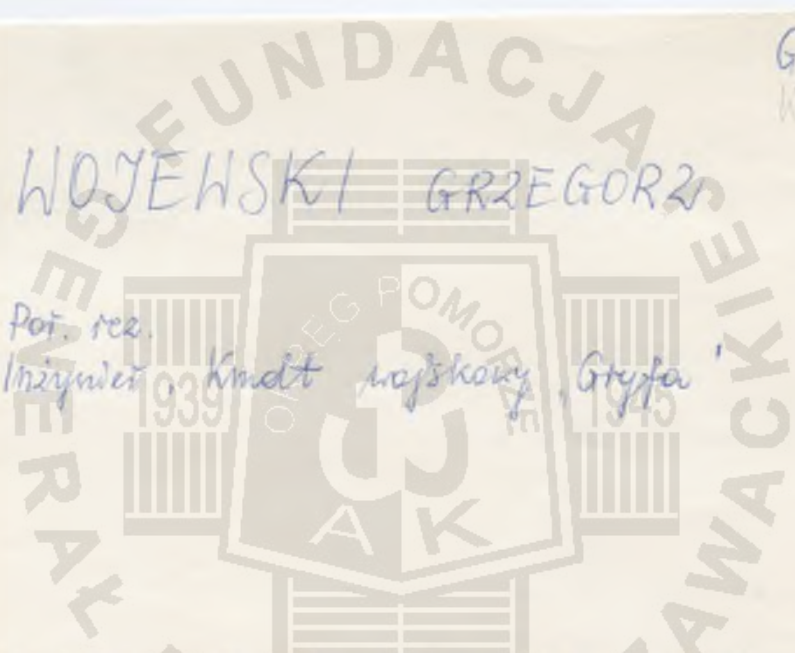 G
WOJEWSKI GRZEGORZ
Por. rez.
Inżynier, Kmdt wojskowy „Gryfa"
FUNDACJA
GENERAŁ
AWACKIEJ
OKRĘG POMORZE
1939
1945
AK